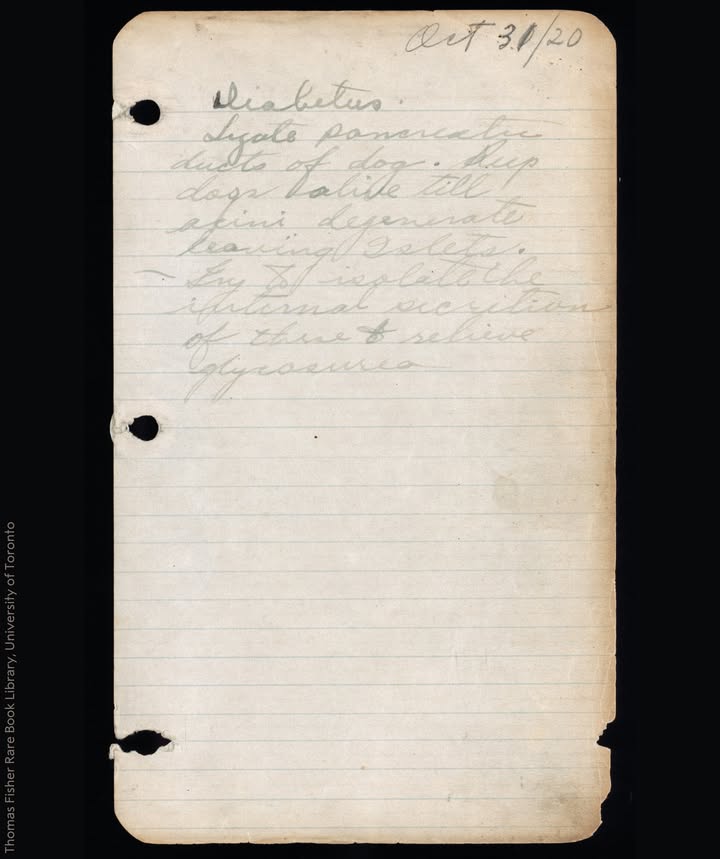 Oct 31/20
Diabetus.
Ligate pancreatic
ducts of dog. Keep
dogs alive till
acini degenerate
leaving Islets.
Try to isolate the
internal secretion
of these & relieve
glycosurea
Thomas Fisher Rare Book Library, University of Toronto